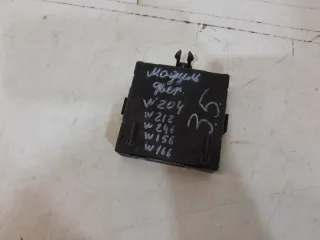 Модуль
двер.
W204
W212
W246
W156
W166
3.5.